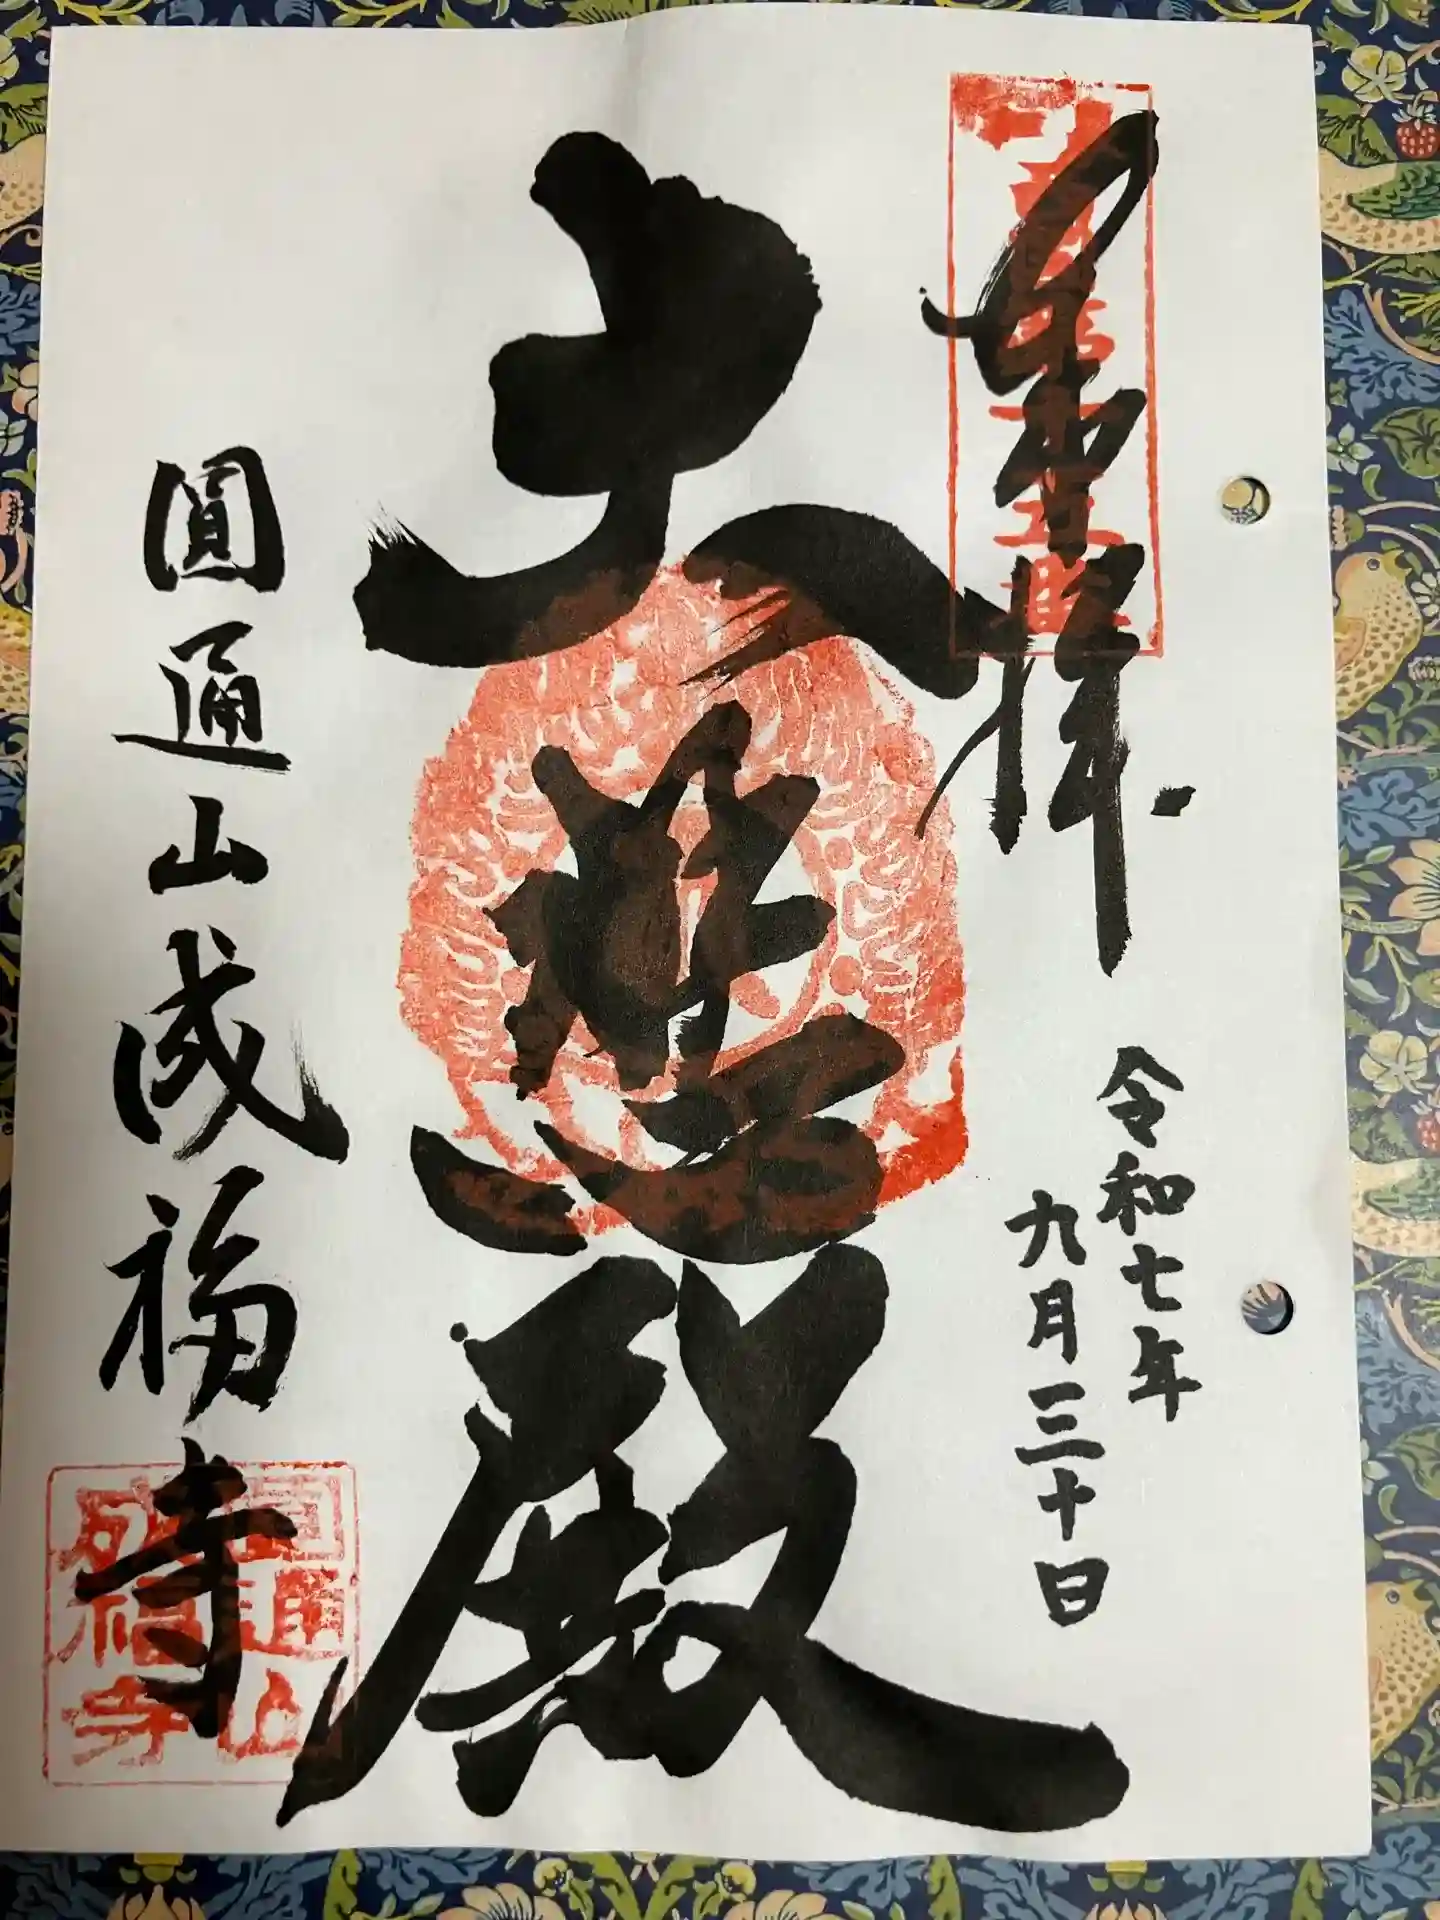 奉拝
令和七年
九月三十日
大悲殿
圓通山成福寺
圓通山
成福寺